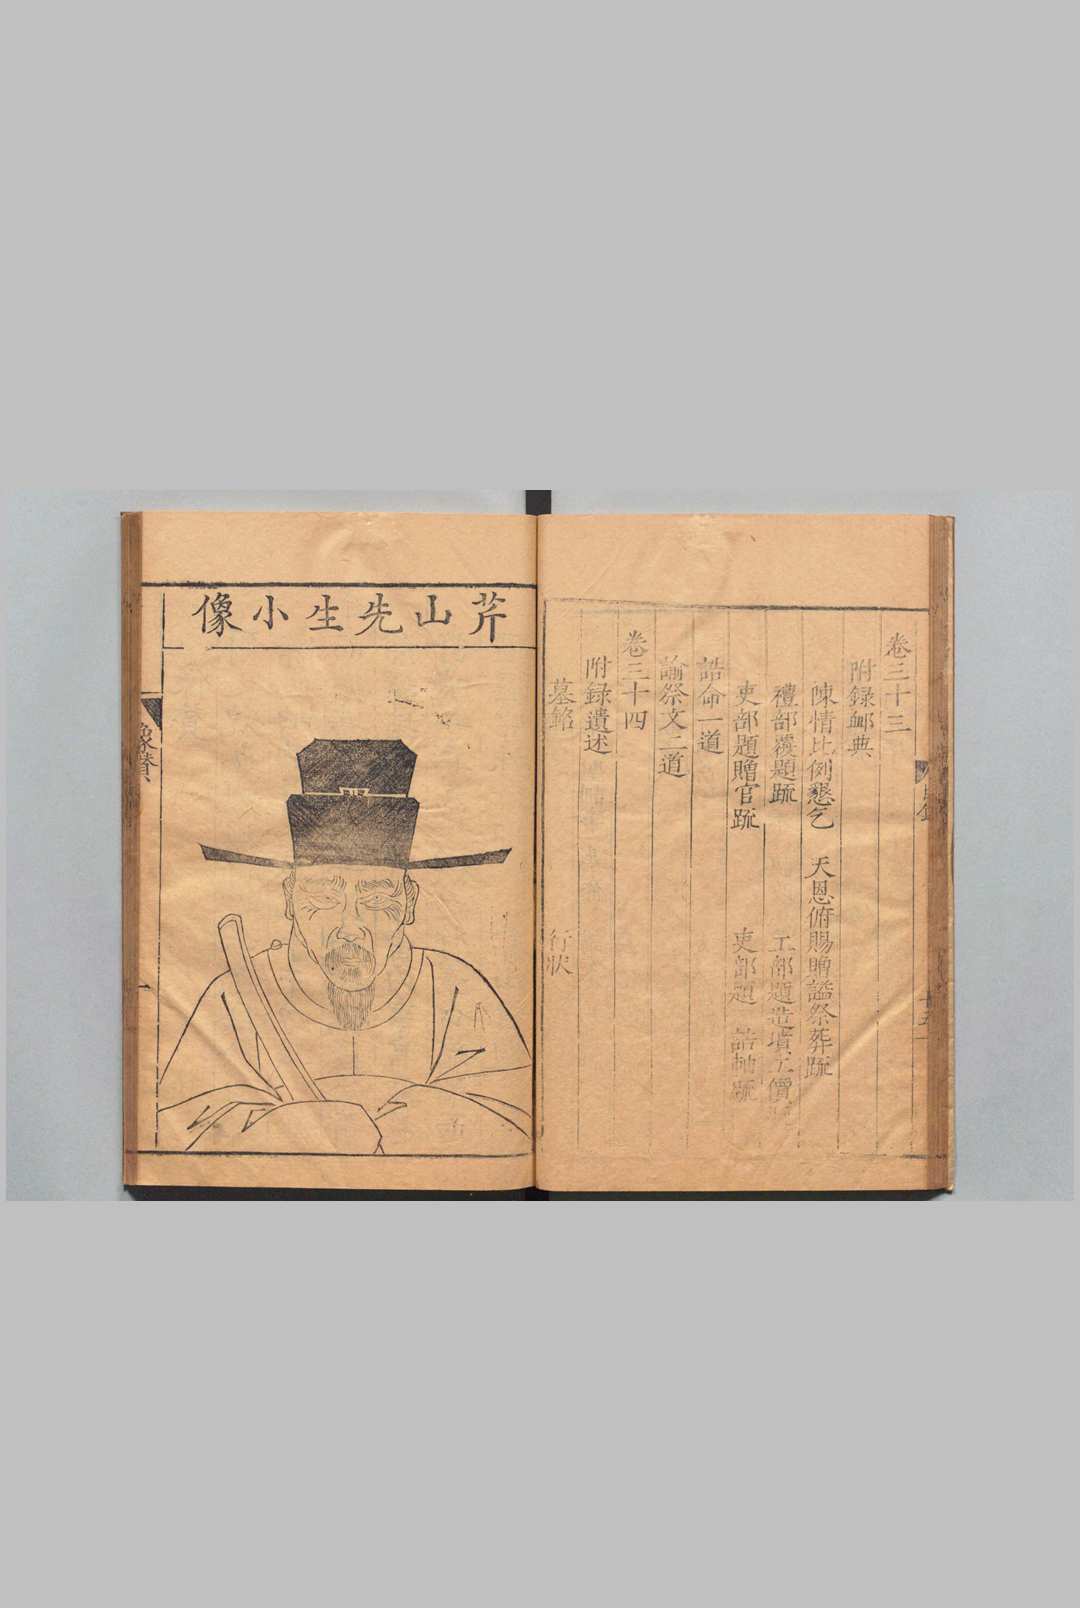 卷三十三
附錄䘏典
陳情比例懇乞　天恩俯賜贈謚祭葬疏
禮部覆題疏　工部題造墳工價疏
吏部題贈官疏　吏部題　誥軸疏
誥命一道
諭祭文二道
卷三十四
附録遺述
墓銘　行狀
芹山先生小像
像贊
一